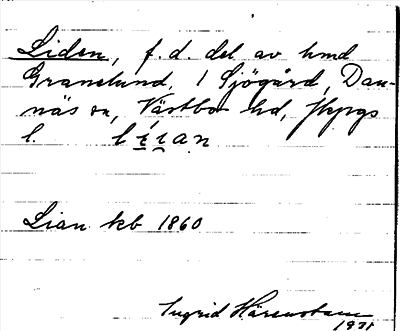 Liden, f. d. del av hmd
Granelund, 1 Sjögård, Dan-
näs sn, Västbo hd, Jkpgs
l. lí̱i̯an
Lian kb 1860
Ingrid Härenstam
1931